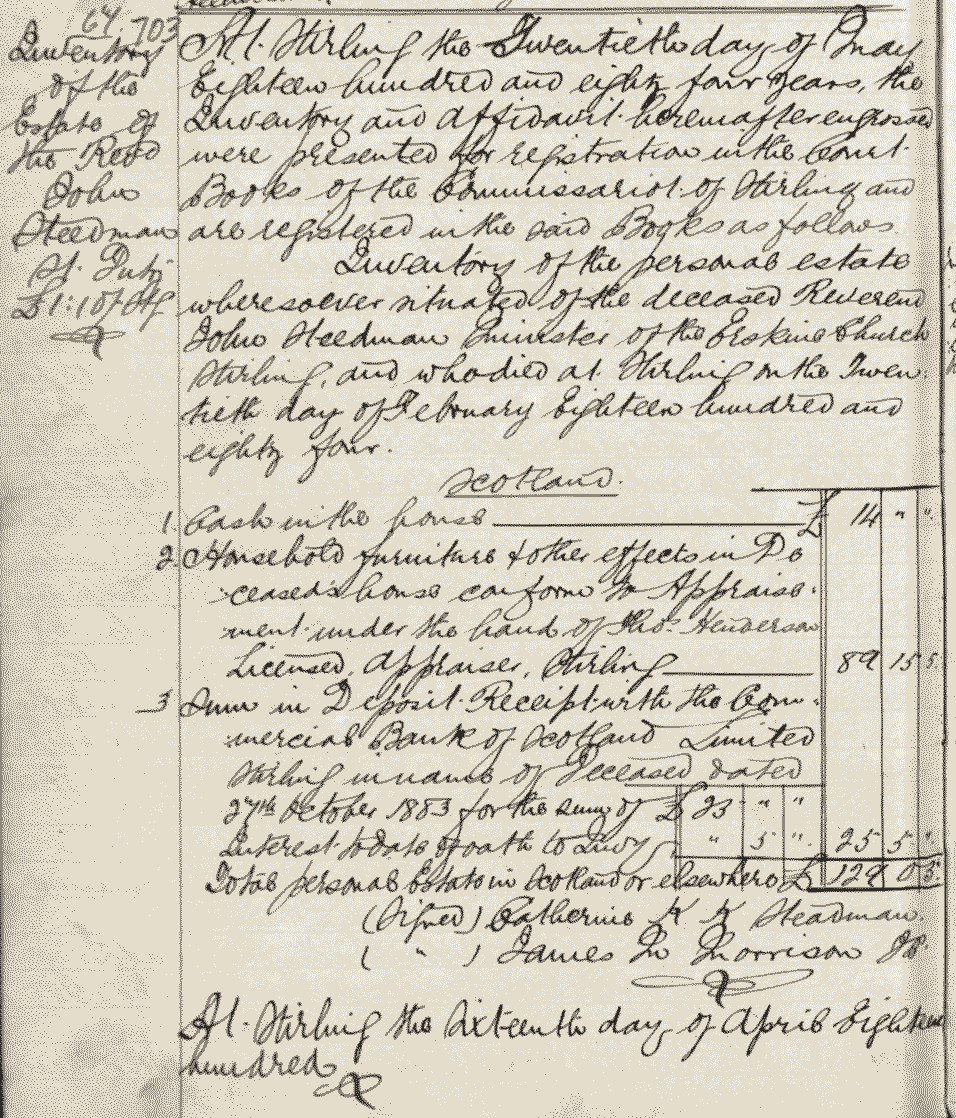 64.703
Inventory
of the
Estate of
the Revd
John
Steedman
St. Duty
£1:10/ Stg
At Stirling the Twentieth day of May
Eighteen hundred and eighty four years, the
Inventory and Affidavit hereinafter engrossed
were presented for registration in the Court
Books of the Commissariot of Stirling and
are registered in the said Books as follows.
Inventory of the personal estate
wheresoever situated of the deceased Reverend
John Steedman Minister of the Erskine Church
Stirling, and who died at Stirling on the Twen
tieth day of February Eighteen hundred and
eighty four.
Scotland.
1. Cash in the house £ 14 " "
2. Household furniture & other effects in De
ceased's house conform to Appraise
ment under the hand of Thos. Henderson
Licensed, Appraiser, Stirling 89 15 5.
3 Sum in Deposit Receipt with the Com
mercial Bank of Scotland Limited
Stirling in name of Deceased dated
27th October 1883 for the sum of £ 25 " "
Interest to date of oath to Invy " 5 " 25 5 "
Total personal Estate in Scotland or elsewhere £ 129 0 5.
(Signed) Catherine K K Steadman.
( " ) James M Morrison JP.
At Stirling the Sixteenth day of April Eighteen
hundred